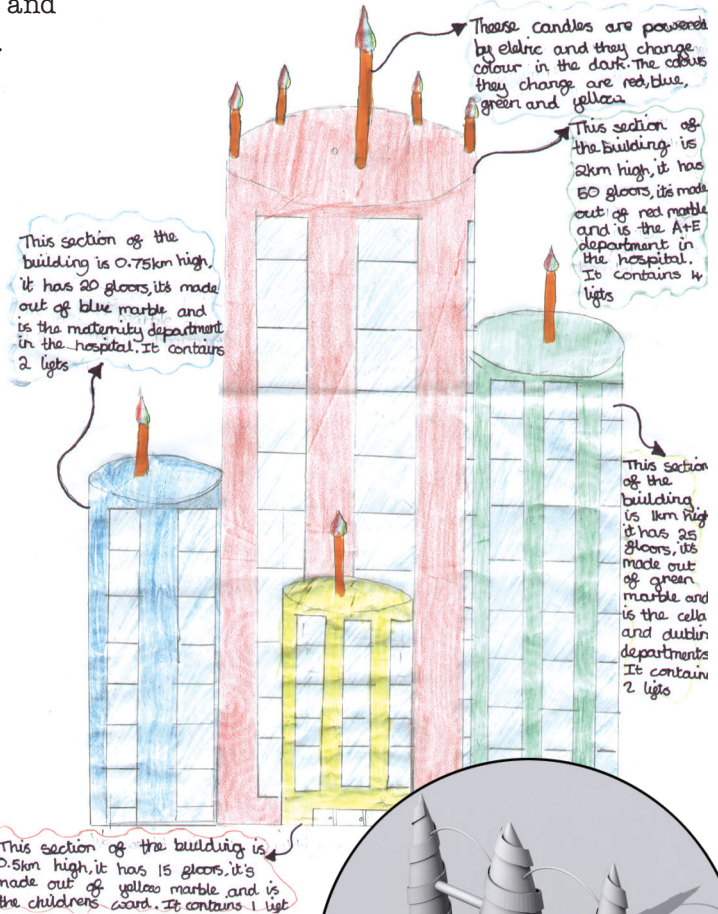 and
.
Theese candles are powered
by eletric and they change
colour in the dark. The colours
they change are red, blue,
green and yellow
This section of
the building is
2km high, it has
50 floors, it's made
out of red marble
and is the A+E
department in
the hospital.
It contains 4
ligts
This section of the
building is 0.75km high,
it has 20 floors, it's made
out of blue marble and
is the maternity department
in the hospital. It contains
2 ligts
This section
of the
building
is 1km high
it has 25
floors, it's
made out
of green
marble and
is the cella
and dutlin
departments
It contains
2 ligts
This section of the building is
0.5km high, it has 15 floors, it's
made out of yellow marble and is
the childrens ward. It contains 1 ligt